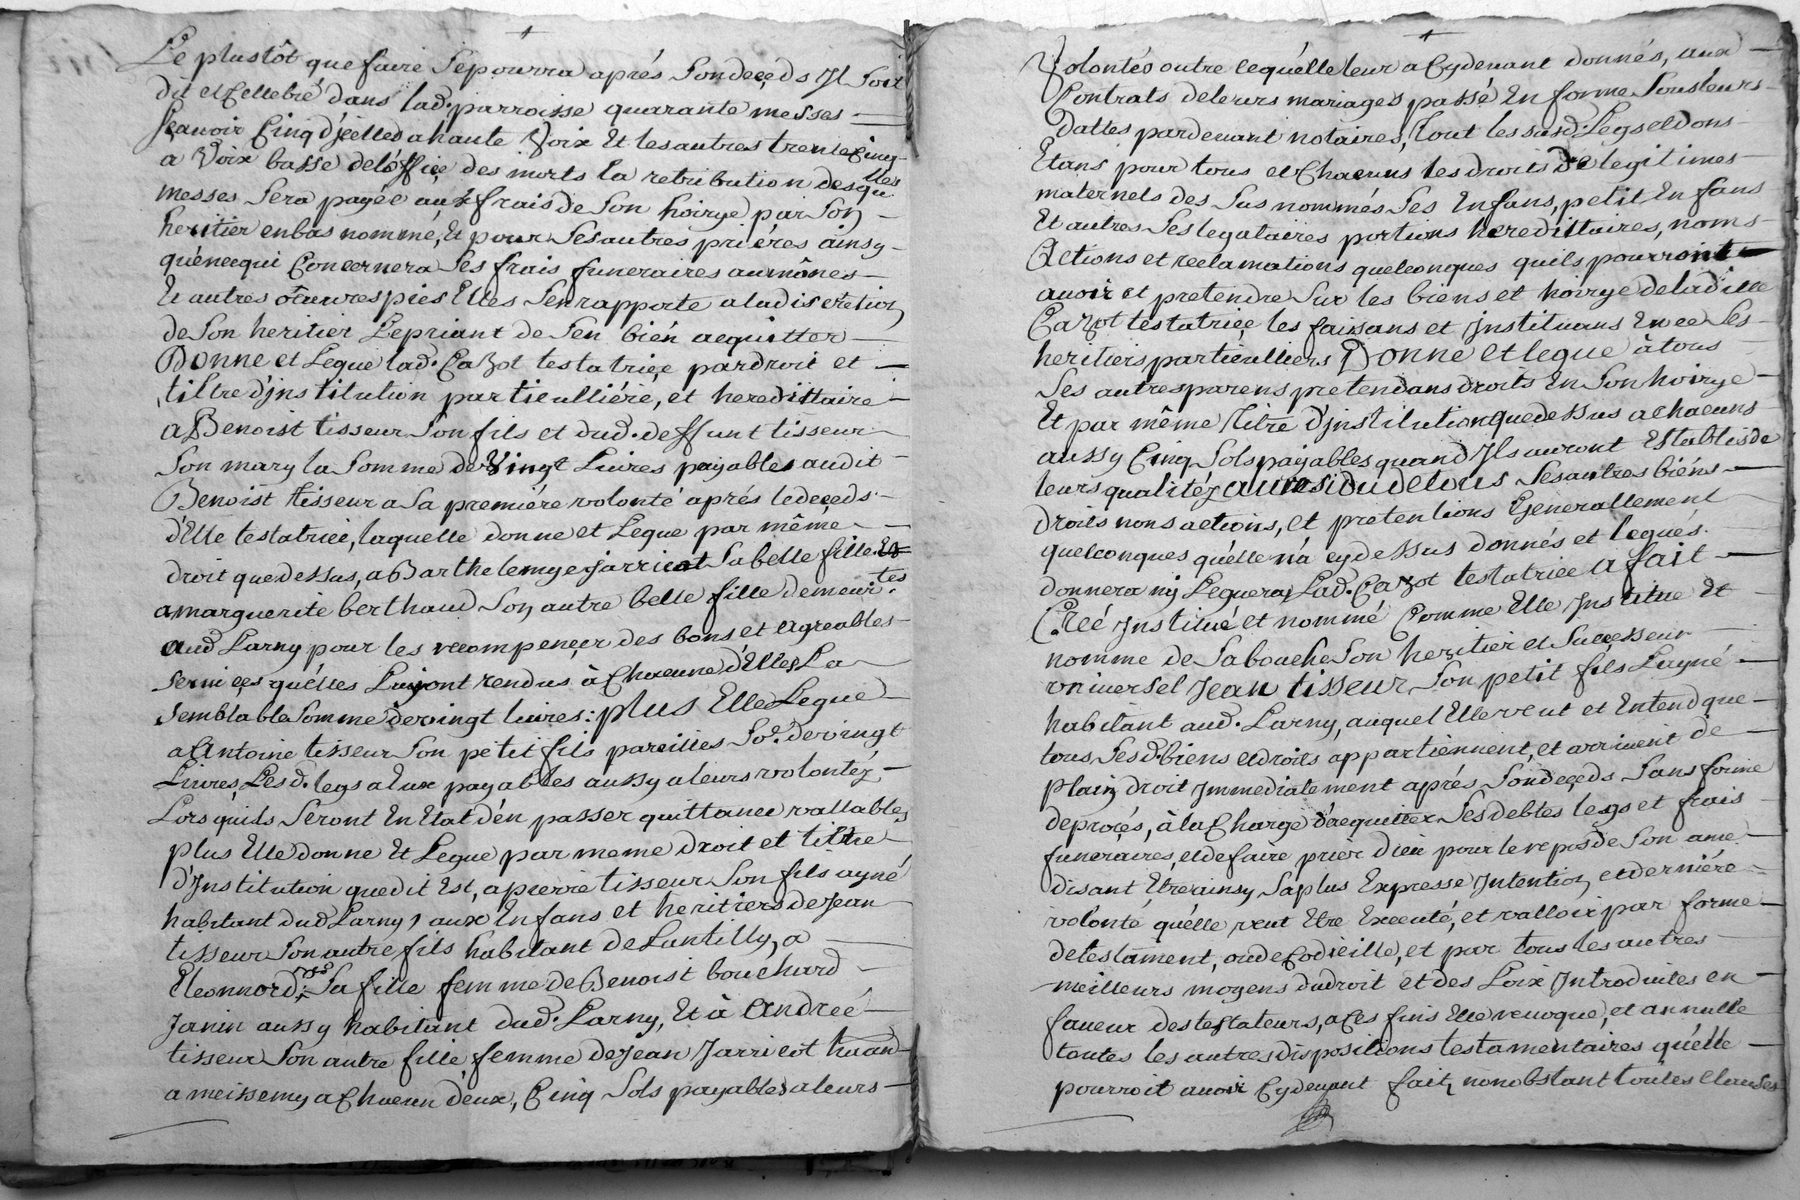 Le plustôt que faire Sepourra aprés Sondeçeds Jl Soit
dit et Cellebré dans lad. parroisse quarante messes
sçauoir Cinq d'jcelles a haute Voix Et les autres trente Cinq
a Voix basse del'office des morts la retribution desqu.lles
messes Sera payée aux frais de Son hoirye par Son
heritier enbas nommé, Et pour Ses autres priéres ainsy
quéncequi Concernera Ses frais funeraires aumônes
Et autres œuures pies Elles Senrapporte a la discretion
de Son heritier Lepriant de Sen bién acquitter
Donne et Legue lad. Cazot testatriçe par droit et
tiltre d'jnstitution particulliére, et heredittaire
a Benoist tisseur Son fils et dud. deffunt tisseur
Son mary la Somme de Vingt Liures payables audit
Benoist tisseur a Sa premiére volonté aprés ledeçeds
d'Elle testatrice, laquelle donne et Legue par même
droit que dessus, a Barthelemye jarricot Sa belle fille Et
a marguerite berthaud Son autre belle fille demeur.tes
aud Larny pour les recompençer des bons et agreables
seruiçes qu'élles Luy ont rendus à Chacune d'Elles La
Semblable Somme de vingt liures: plus Elle Legue
a Antoine tisseur Son petit fils pareilles So.e de vingt
Liures, Lesd. legs a Eux payables aussy a leurs volontéz
Lors qu'ils Seront En Etat d'én passer quittance vallables
plus Elle donne Et Legue par meme droit et tiltre
d'Institution que dit Est, a pierre tisseur Son fils ayné
habitant dud Larny, aux Enfans et heritiers de Jean
tisseur Son autre fils habitant de Lentilly, a
Eleonnord Sa fille femme de Benoist bouchard
Janin aussy habitant dud. Larny, Et à Andreé
tisseur Son autre fille, femme de Jean Jarricot
a meissemy a Chacun d'eux, Cinq Sols payables a leurs
Volontés outre cequ'élle leur a Cydeuant donnés, aux
Contrats de leurs mariages passé En forme Sous leurs
Dattes pardeuant notaires, Tout les susd. Legs et dons
Etans pour tous et Chacuns les droits De legitimes
maternels des Sus nommés Ses Enfans, petit Enfans
Et autres Ses legataires portions heredittaires, noms
Actions et reclamations quelconques quils pourront
auoir et pretendre Sur les biens et hoirye de ladite
Cazot testatriçe les faisans et jnstituans En ce Ses
heritiers particulliers Donne et legue à tous
Ses autres parens pretendans droits En Son hoirye
Et par même Titre d'jnstitution que dessus a chacuns
aussy Cinq Sols payables quand Jls auront Establis de
leurs qualitéz au residu de tous Ses autres biéns
droits noms actions, et pretentions Generallement
quelconques qu'élle n'à cy dessus donnés et legués
donnera ny Leguera, Lad. Cazot testatrice a fait
Creé jnstitué et nommé Comme Elle Institue Et
nomme de Sa bouche Son heritier et Successeur
vniuersel Jean tisseur Son petit fils Layné
habitant aud. Larny, auquel Elle veut et Entend que
tous Sesd. biens et droits appartiennent, et arriuent de
plain droit jmmediatement aprés Sondeçeds Sans forme
de procés, à la Charge d'acquitter Ses debtes legs et frais
funeraires, et de faire prier Dieu pour le repos de Son ame
disant Etre ainsy Sa plus Expresse Intention et derniére
volonté qu'élle veut Etre Executé, et valloir par forme
de testament, ou de Codicille, et par tous les autres
meilleurs moyens du droit et des Loix Introduites en
faueur des testateurs, a Ces fins Elle reuoque, et annulle
toutes les autres dispositions testamentaires qu'élle
pourroit auoir Cydeuant fait, nonobstant toutes Clauses